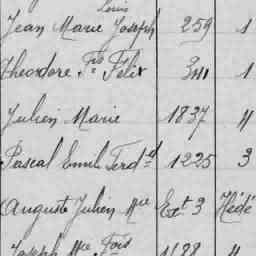 Louis
Jean Marie Joseph 259 1
Théodore Fois Félix 3111 1
Julien Marie 1837 "
Pascal Emile Ferd^d 1225 3
Auguste Julien Mie Ext 3 Hédé
Joseph Mie Fois 1188 "